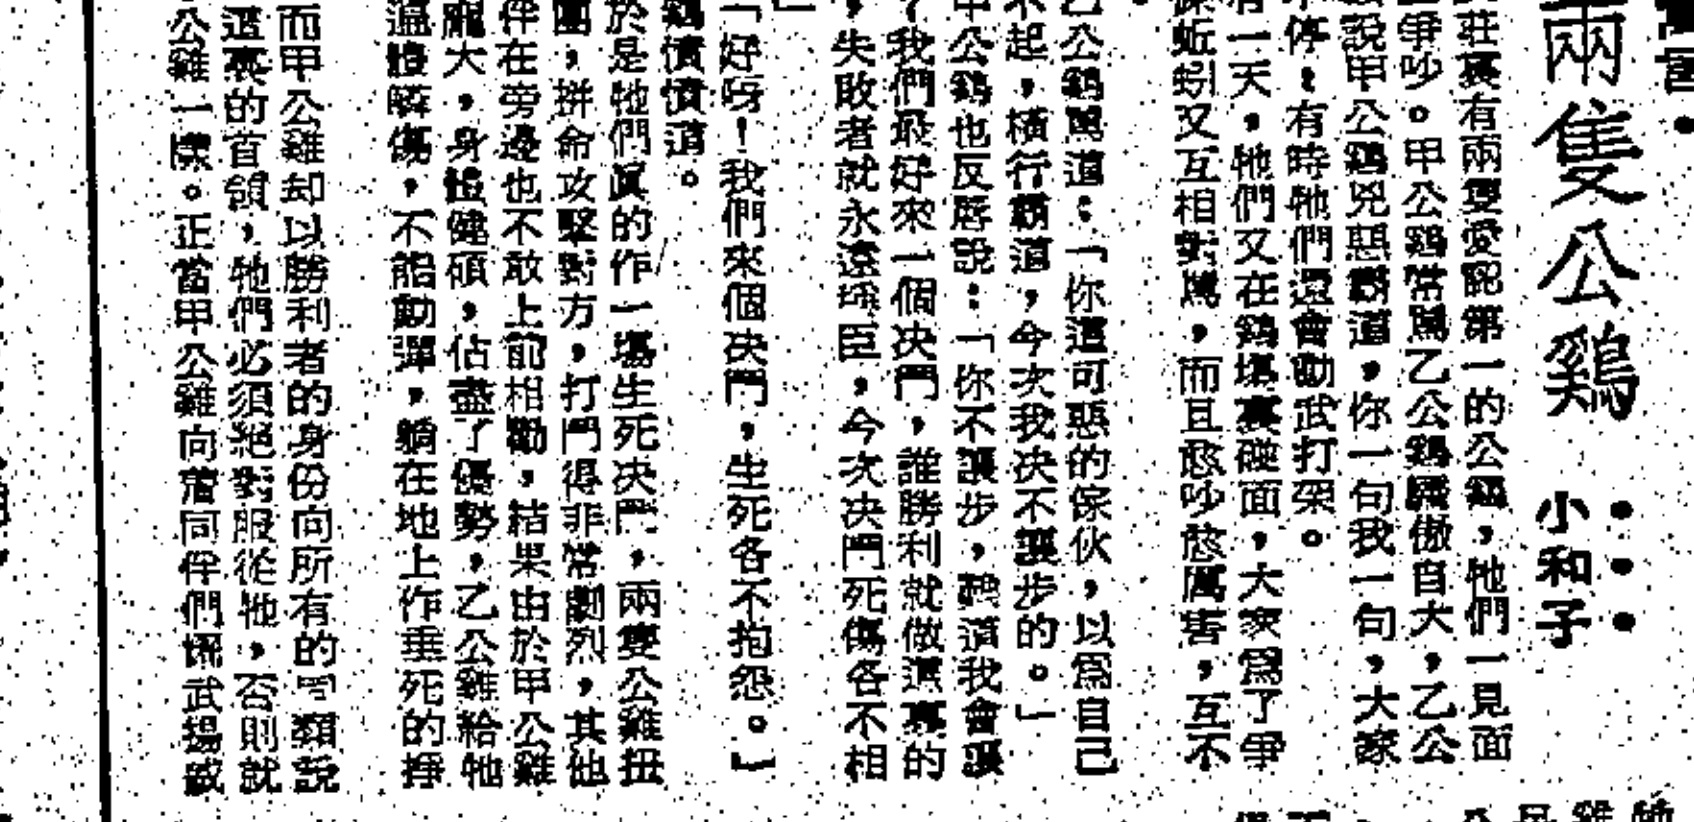 寓言·
兩隻公鷄 小和子
莊裏有兩隻愛認第一的公鷄，牠們一見面
爭吵。甲公鷄常罵乙公鷄驕傲自大，乙公
說甲公鷄兇惡霸道，你一句我一句，大家
停；有時牠們還會動武打架。
有一天，牠們又在鷄塲裏碰面，大家爲了爭
蚯蚓又互相對罵，而且愈吵愈厲害，互不
乙公鷄罵道：「你這可惡的傢伙，以爲自己
不起，橫行霸道，今次我决不讓步的。」
甲公鷄也反唇說：「你不讓步，難道我會讓
？我們最好來一個决鬥，誰勝利就做這裏的
，失敗者就永遠稱臣，今次决鬥死傷各不相
」
「好呀！我們來個决鬥，生死各不抱怨。」
鷄憤憤道。
於是牠們眞的作一塲生死决鬥，兩隻公雞扭
團，拼命攻擊對方，打鬥得非常劇烈，其他
伴在旁邊也不敢上前相勸，結果由於甲公雞
龐大，身體健碩，佔盡了優勢，乙公雞給牠
遍體鱗傷，不能動彈，躺在地上作垂死的掙
而甲公雞却以勝利者的身份向所有的同類說
這裏的首領，牠們必須絕對服從牠，否則就
公雞一樣。正當甲公雞向舊同伴們耀武揚威